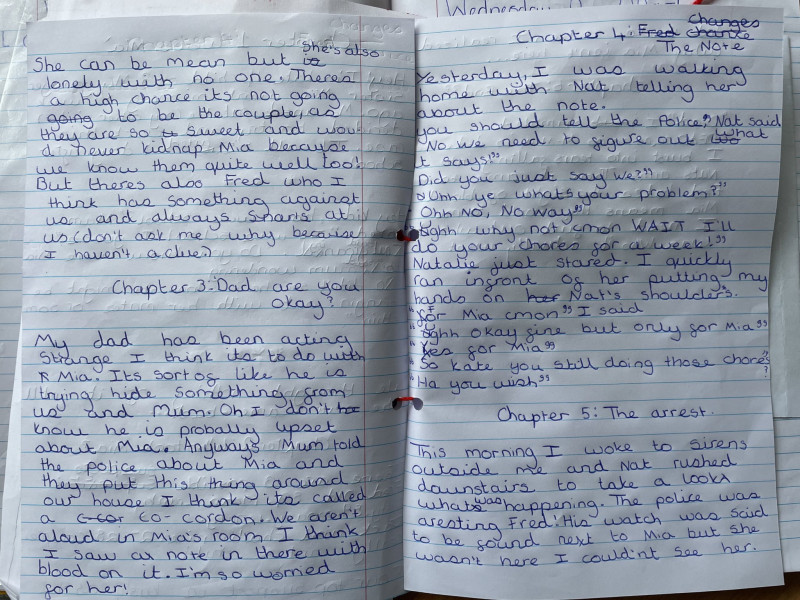 She can be mean but is She's also
lonely with no one. There's
a high chance its not going
going to be the couple, as
they are so sweet and woul
d never kidnap Mia because
we know them quite well too!
But theres also Fred who I
think has something against
us and always snarls at
us (don't ask me why because
I haven't a clue.)
Chapter 3: Dad are you
okay?
My dad has been acting
strange I think its to do with
Mia. Its sort of like he is
trying hide something from
us and Mum. Oh I don't
know he is probally upset
about Mia. Anyways Mum told
the police about Mia and
they put this thing around
our house I think its called
a Co- cordon. We aren't
aloud in Mia's room I think
I saw a note in there with
blood on it. I'm so worried
for her!
Wednesday
Chapter 4: Fred chance Changes
The Note
Yesterday, I was walking
home with Nat telling her
about the note.
you should tell the Police," Nat said
"No we need to figure out what
it says!"
Did you just say we?"
"Uhh ye whats your problem?"
Ohh No, No way"
"Ughh why not cmon WAIT I'll
do your chores for a week!"
Natalie just stared. I quickly
ran infront of her putting my
hands on her Nat's shoulders.
"for Mia cmon" I said
"Ughh okay fine but only for Mia"
"Yes for Mia"
"So Kate you still doing those chores?
"Ha you wish"
Chapter 5: The arrest.
This morning I woke to sirens
outside me and Nat rushed
downstairs to take a look
whats was happening. The police was
aresting Fred! His watch was said
to be found next to Mia but she
wasn't here I could'nt see her.